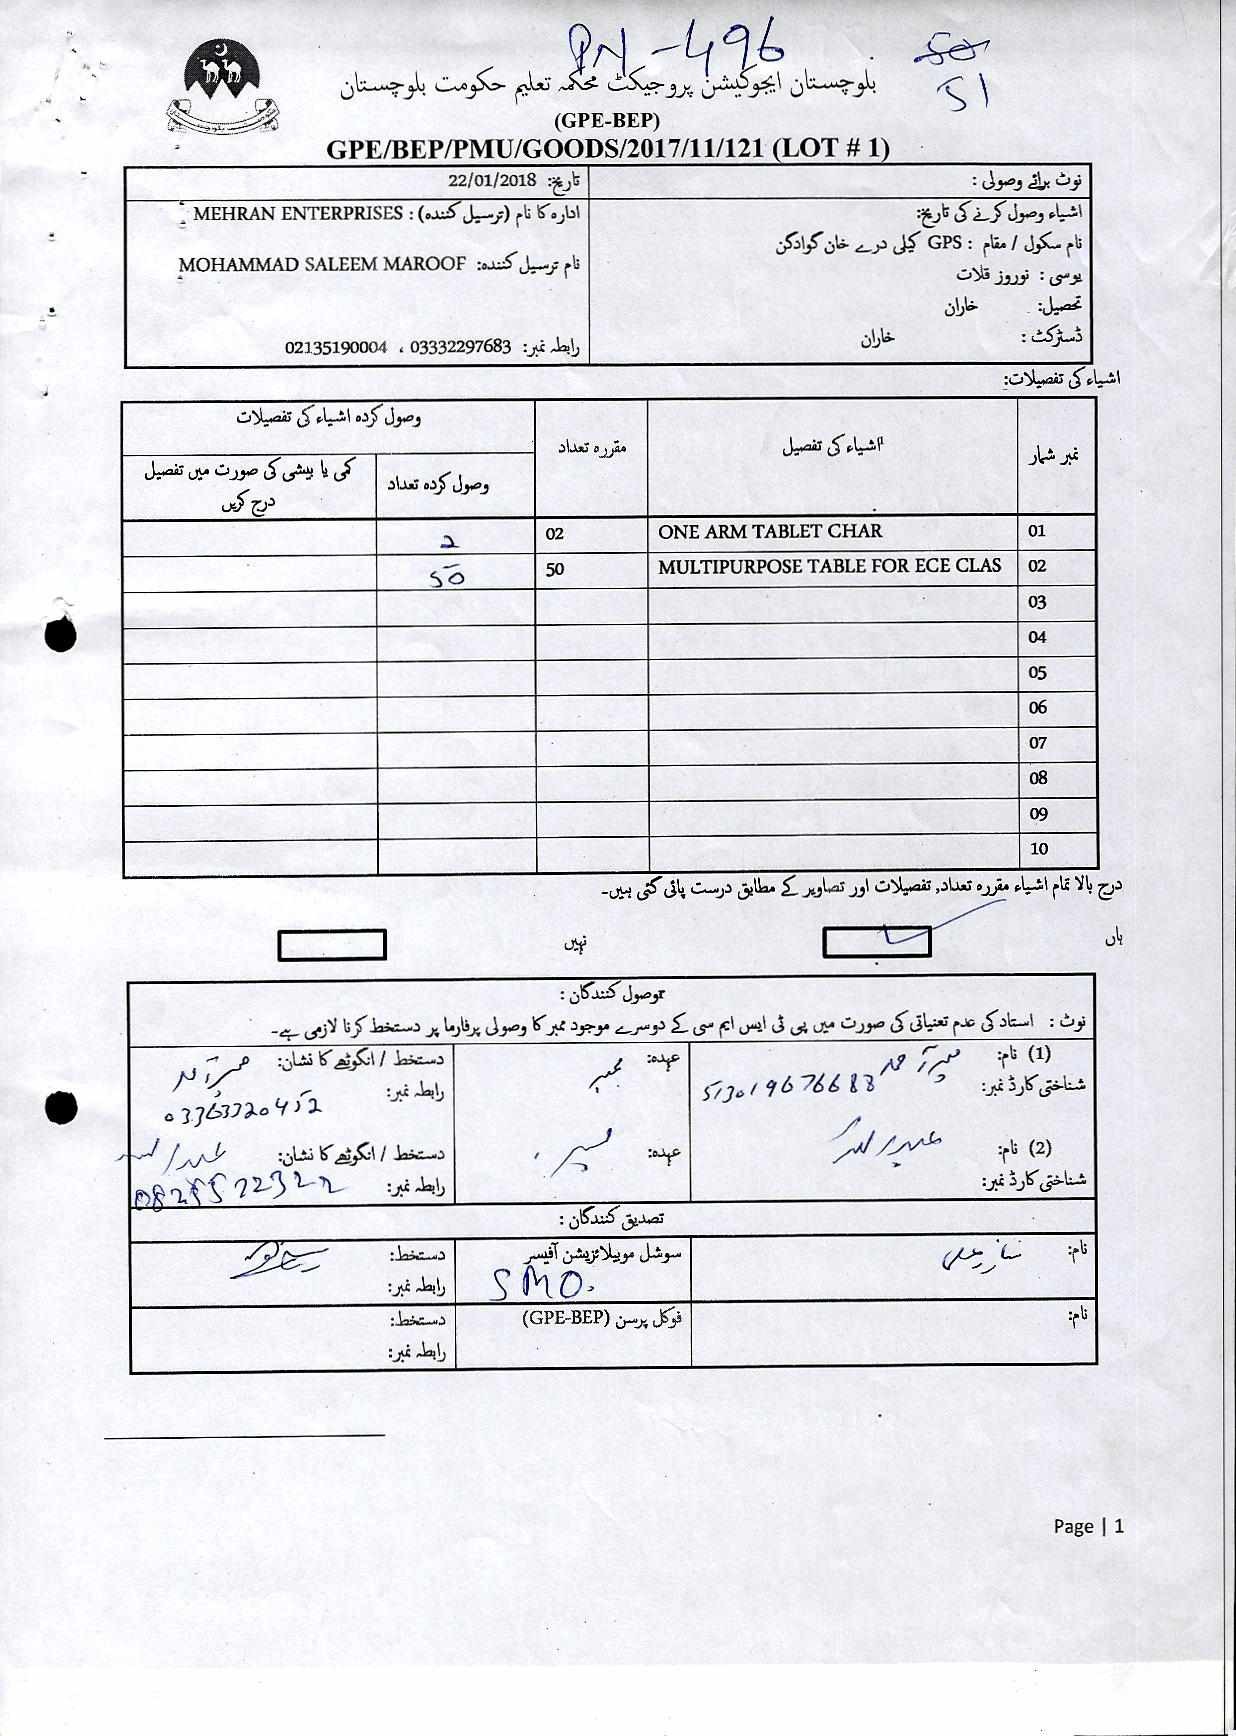 PN-496
50
51
بلوچستان ایجوکیشن پروجیکٹ محکمہ تعلیم حکومت بلوچستان
(GPE-BEP)
GPE/BEP/PMU/GOODS/2017/11/121 (LOT # 1)
نوٹ برائے وصولی :
تاریخ: 22/01/2018
اشیاء وصول کرنے کی تاریخ:
نام سکول / مقام : GPS کیلی درے خان گوادگن
یوسی : نوروز قلات
تحصیل: خاران
ڈسٹرکٹ : خاران
ادارہ کا نام (ترسیل کنندہ) : MEHRAN ENTERPRISES
نام ترسیل کنندہ: MOHAMMAD SALEEM MAROOF
رابطہ نمبر: 03332297683 ، 02135190004
اشیاء کی تفصیلات:
نمبر شمار اشیاء کی تفصیل مقررہ تعداد وصول کردہ اشیاء کی تفصیلات
وصول کردہ تعداد کمی یا بیشی کی صورت میں تفصیل درج کریں
01 ONE ARM TABLET CHAR 02 2
02 MULTIPURPOSE TABLE FOR ECE CLAS 50 50
03
04
05
06
07
08
09
10
درج بالا تمام اشیاء مقررہ تعداد, تفصیلات اور تصاویر کے مطابق درست پائی گئی ہیں۔
ہاں نہیں
وصول کنندگان :
نوٹ : استاد کی عدم تعنیاتی کی صورت میں پی ٹی ایس ایم سی کے دوسرے موجود ممبر کا وصولی پرفارما پر دستخط کرنا لازمی ہے۔
(1) نام: عہدہ: ممبر دستخط / انگوٹھے کا نشان:
شناختی کارڈ نمبر: 513019676688 رابطہ نمبر: 03363320452
(2) نام: عہدہ: دستخط / انگوٹھے کا نشان:
شناختی کارڈ نمبر: رابطہ نمبر:
تصدیق کنندگان :
نام: سوشل موبیلائزیشن آفیسر دستخط:
SMO. رابطہ نمبر:
نام: فوکل پرسن (GPE-BEP) دستخط:
رابطہ نمبر:
Page | 1